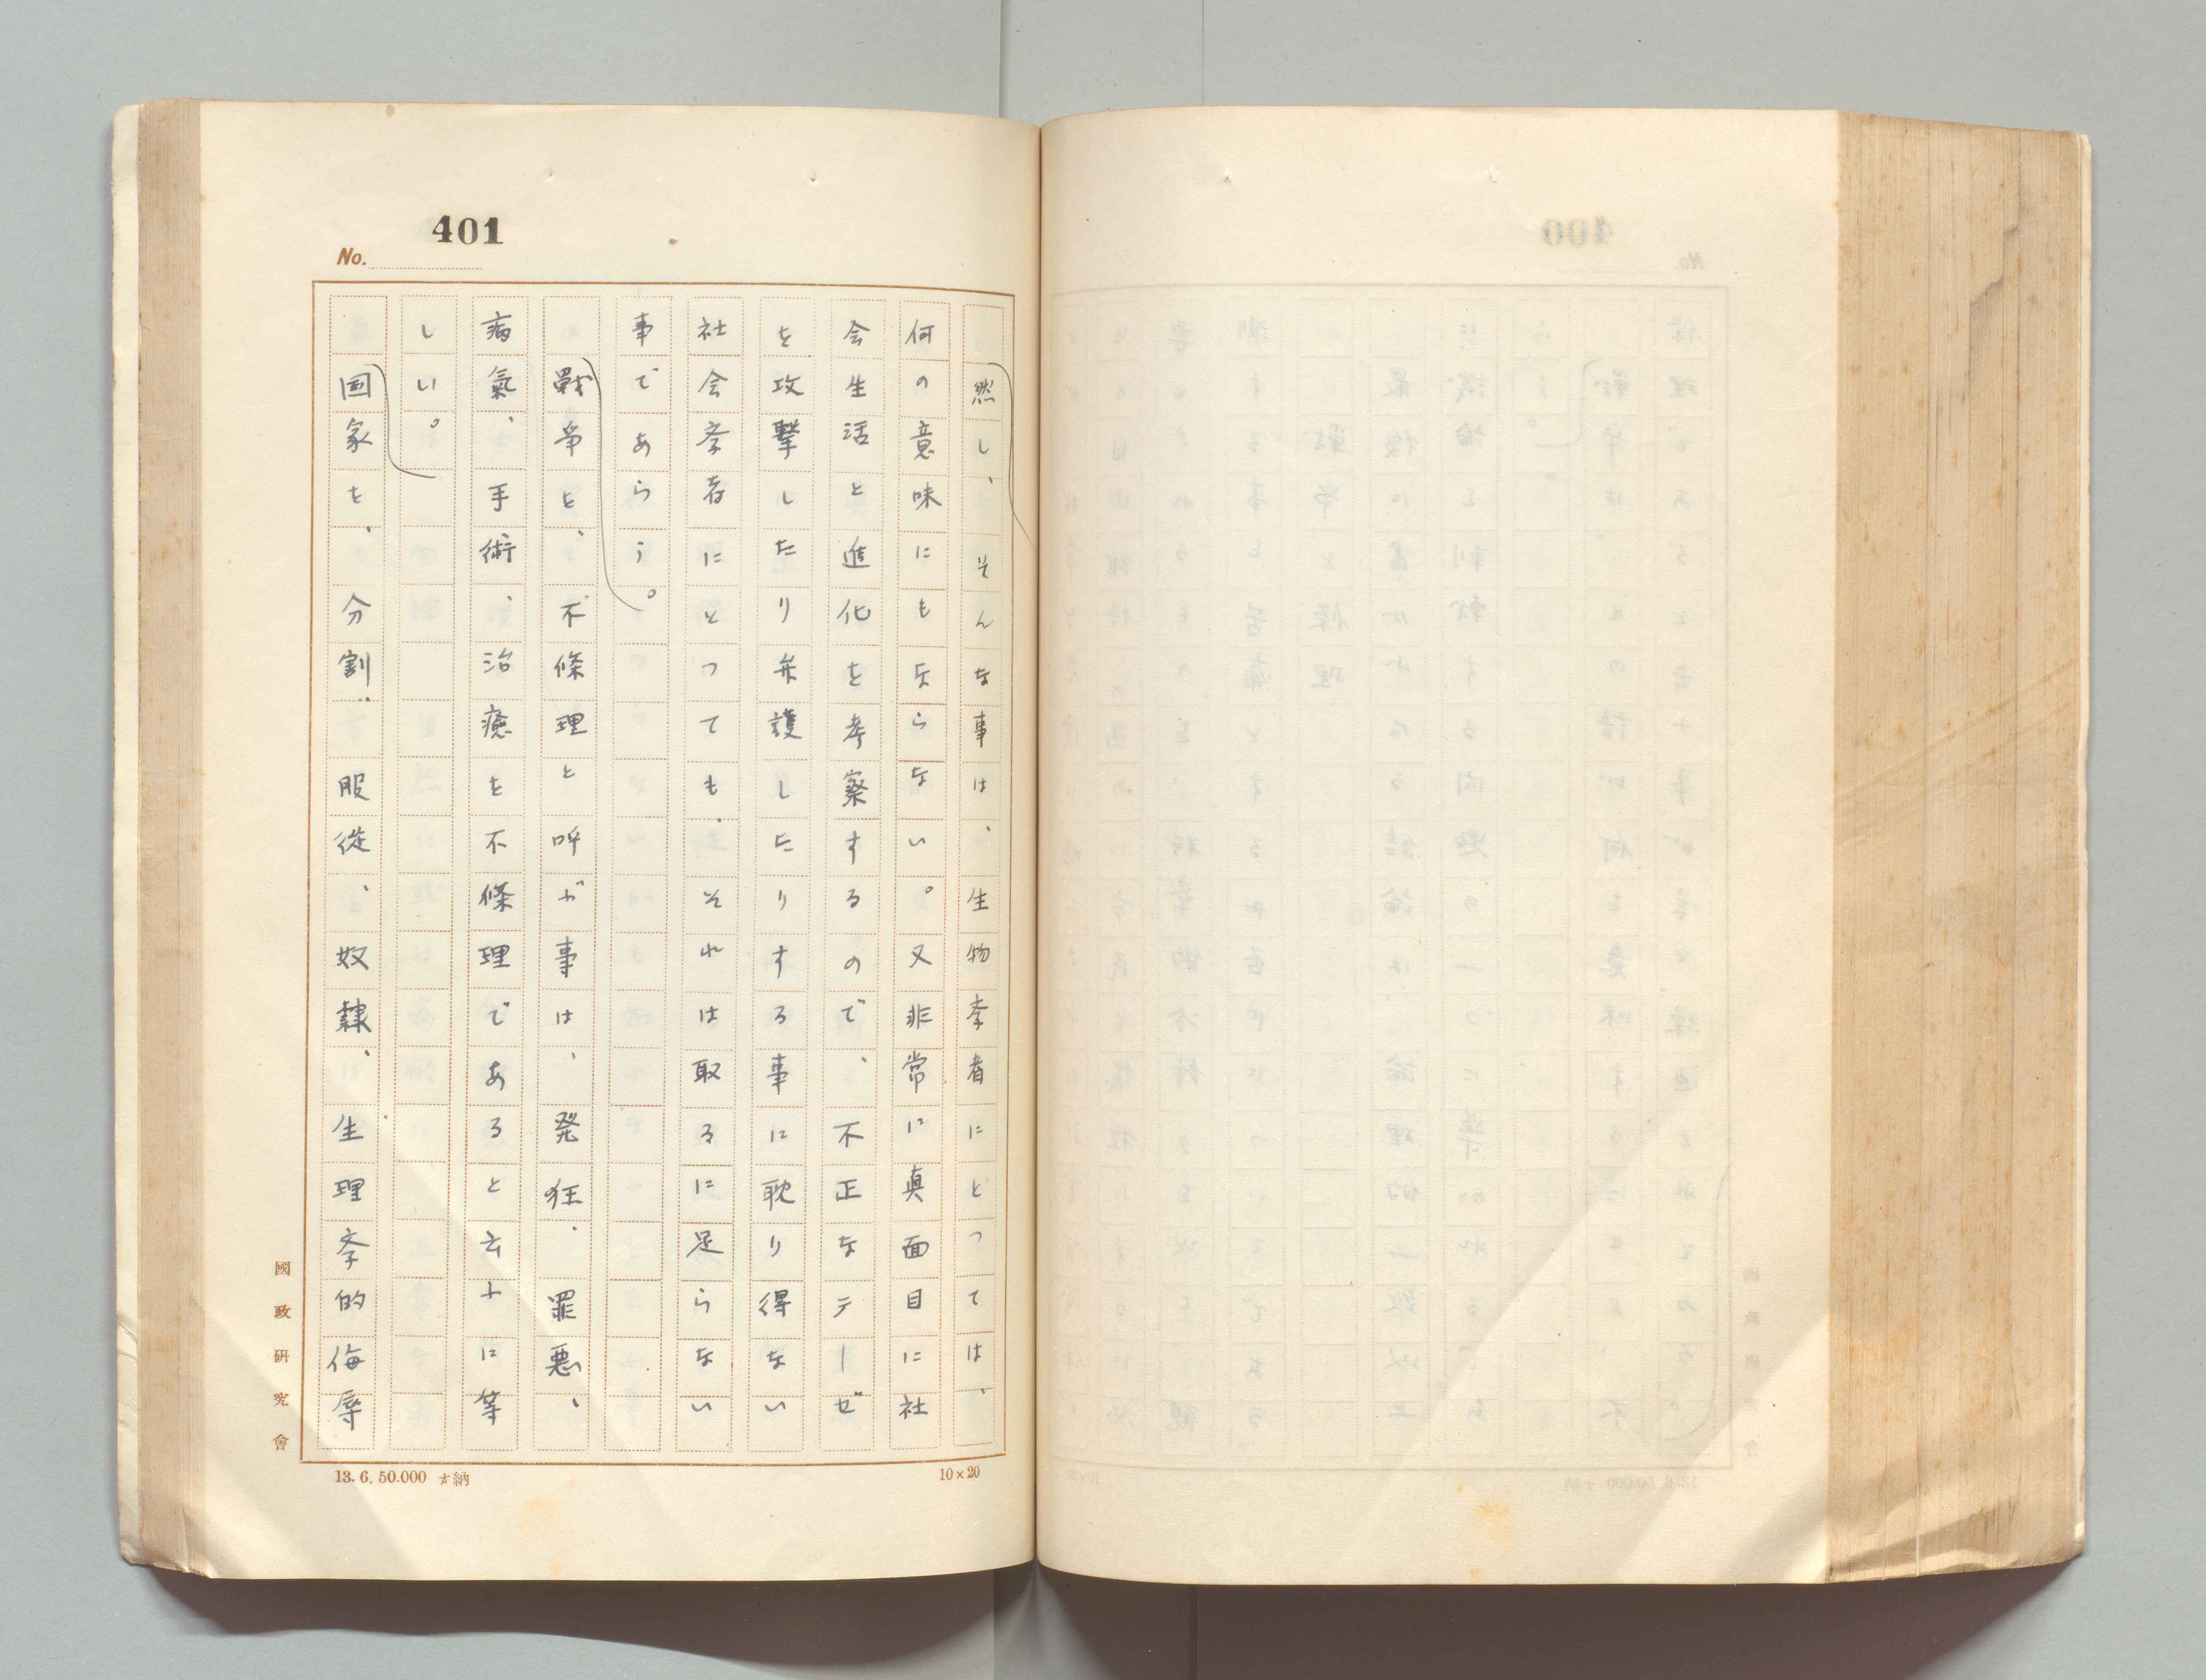 401
No.
然し、そんな事は、生物学者にとつては、
何の意味にもならない。又非常に真面目に社
会生活と進化を考察するので、不正なテーゼ
を攻撃したり弁護したりする事に耽り得ない
社会学者にとつても、それは取るに足らない
事であらう。
戦争を、不條理と呼ぶ事は、発狂、罪悪、
病氣、手術、治癒を不條理であると云ふに等
しい。
国家を、分割、服従、奴隷、生理学的侮辱
國政研究會
13.6.50.000 納
10×20